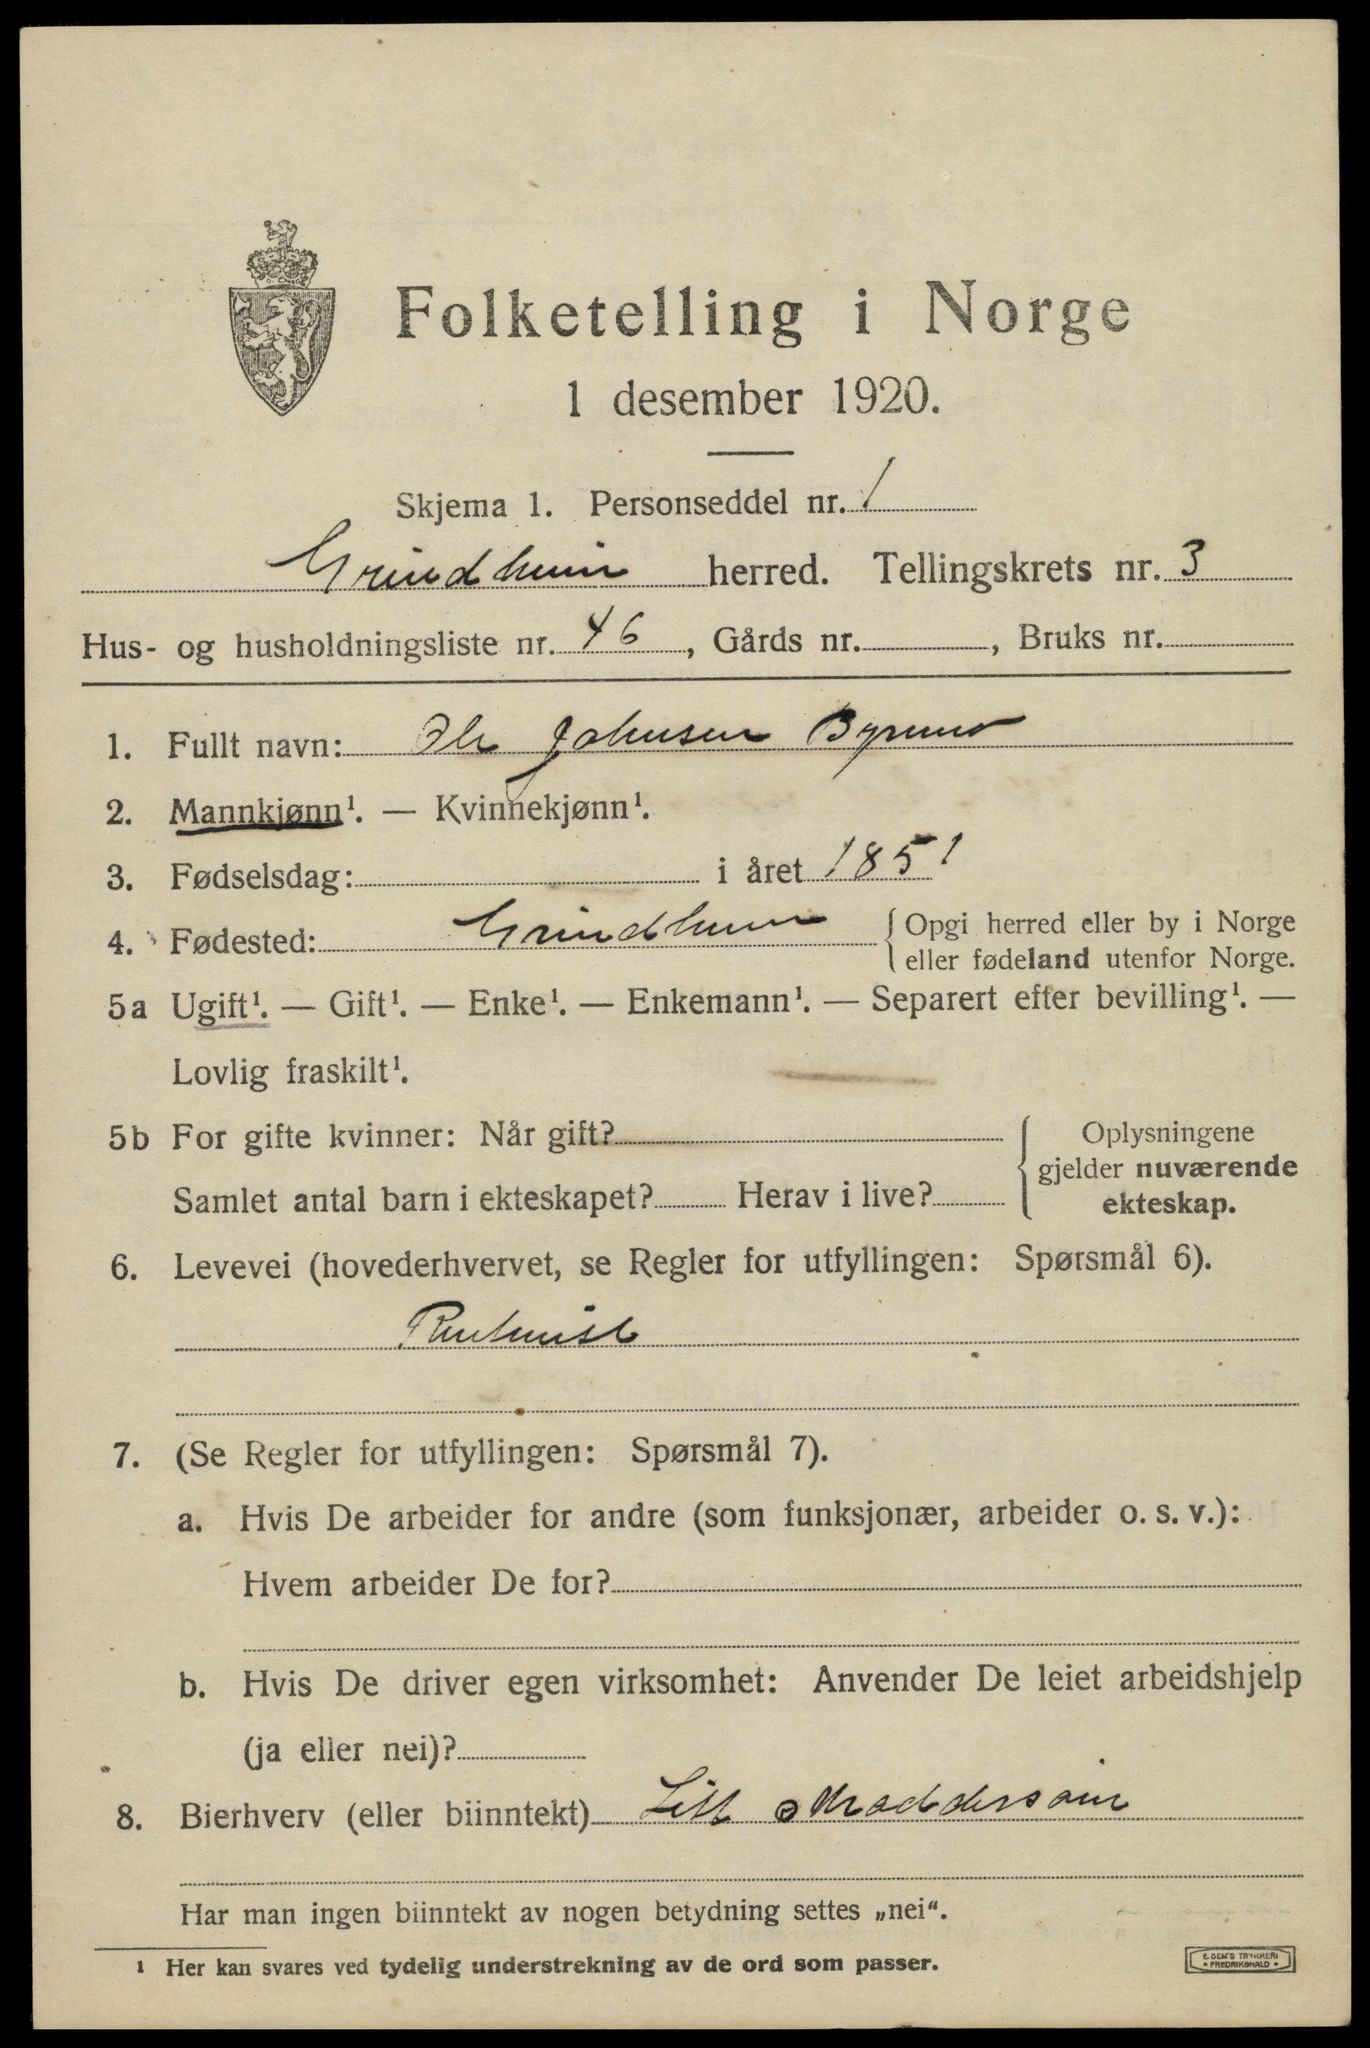 Folketelling i Norge
1 desember 1920.
Skjema 1. Personseddel nr. 1
Grindheim herred. Tellingskrets nr. 3
Hus- og husholdningsliste nr. 46, Gårds nr. , Bruks nr.
1. Fullt navn: Ole Johnsen Byremo
2. Mannkjønn¹. — Kvinnekjønn¹.
3. Fødselsdag: i året 1851
4. Fødested: Grindheim {Opgi herred eller by i Norge
eller fødeland utenfor Norge.
5a Ugift¹. — Gift¹. — Enke¹. — Enkemann¹. — Separert efter bevilling¹. —
Lovlig fraskilt¹.
5b For gifte kvinner: Når gift? { Oplysningene
gjelder nuværende
Samlet antal barn i ekteskapet? Herav i live?
ekteskap.
6. Levevei (hovederhvervet, se Regler for utfyllingen: Spørsmål 6).
Rentenist
7. (Se Regler for utfyllingen: Spørsmål 7).
a. Hvis De arbeider for andre (som funksjonær, arbeider o. s. v.):
Hvem arbeider De for?
b. Hvis De driver egen virksomhet: Anvender De leiet arbeidshjelp
(ja eller nei)?
8. Bierhverv (eller biinntekt) Litt
Har man ingen biinntekt av nogen betydning settes „nei“.
¹ Her kan svares ved tydelig understrekning av de ord som passer.
E. SEM'S TRYKKERI
FREDRIKSHALD